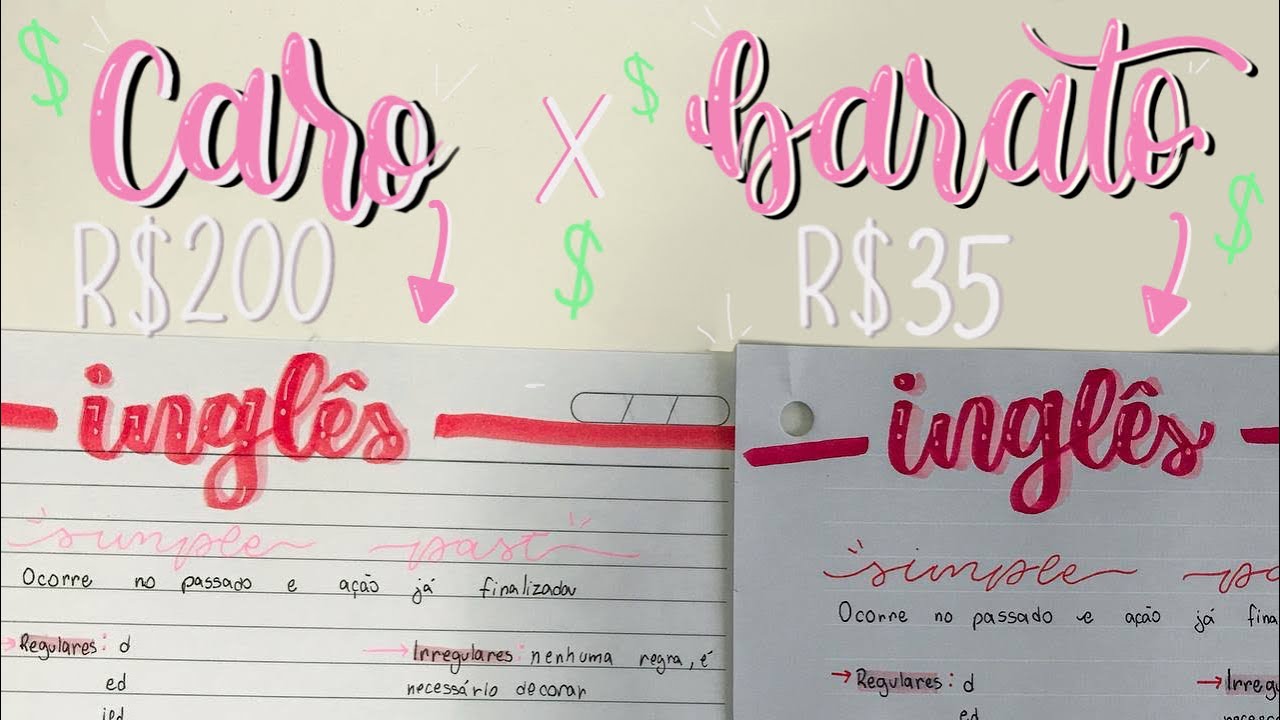 $ Caro X $ barato
R$200 $ R$35 $
inglês
simple past
Ocorre no passado e ação já finalizada
→ Regulares: d
ed
ied
→ Irregulares: nenhuma regra, é
necessário decorar
inglês
simple
Ocorre no passado e ação já
→ Regulares: d
ed